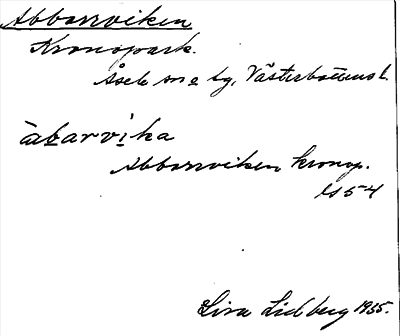 Abborrviken
Kronopark.
Åsele sn o tg, Västerbottens l.
àbarvika
Abborrviken kronop.
ls 54
Lisa Lidberg 1935.